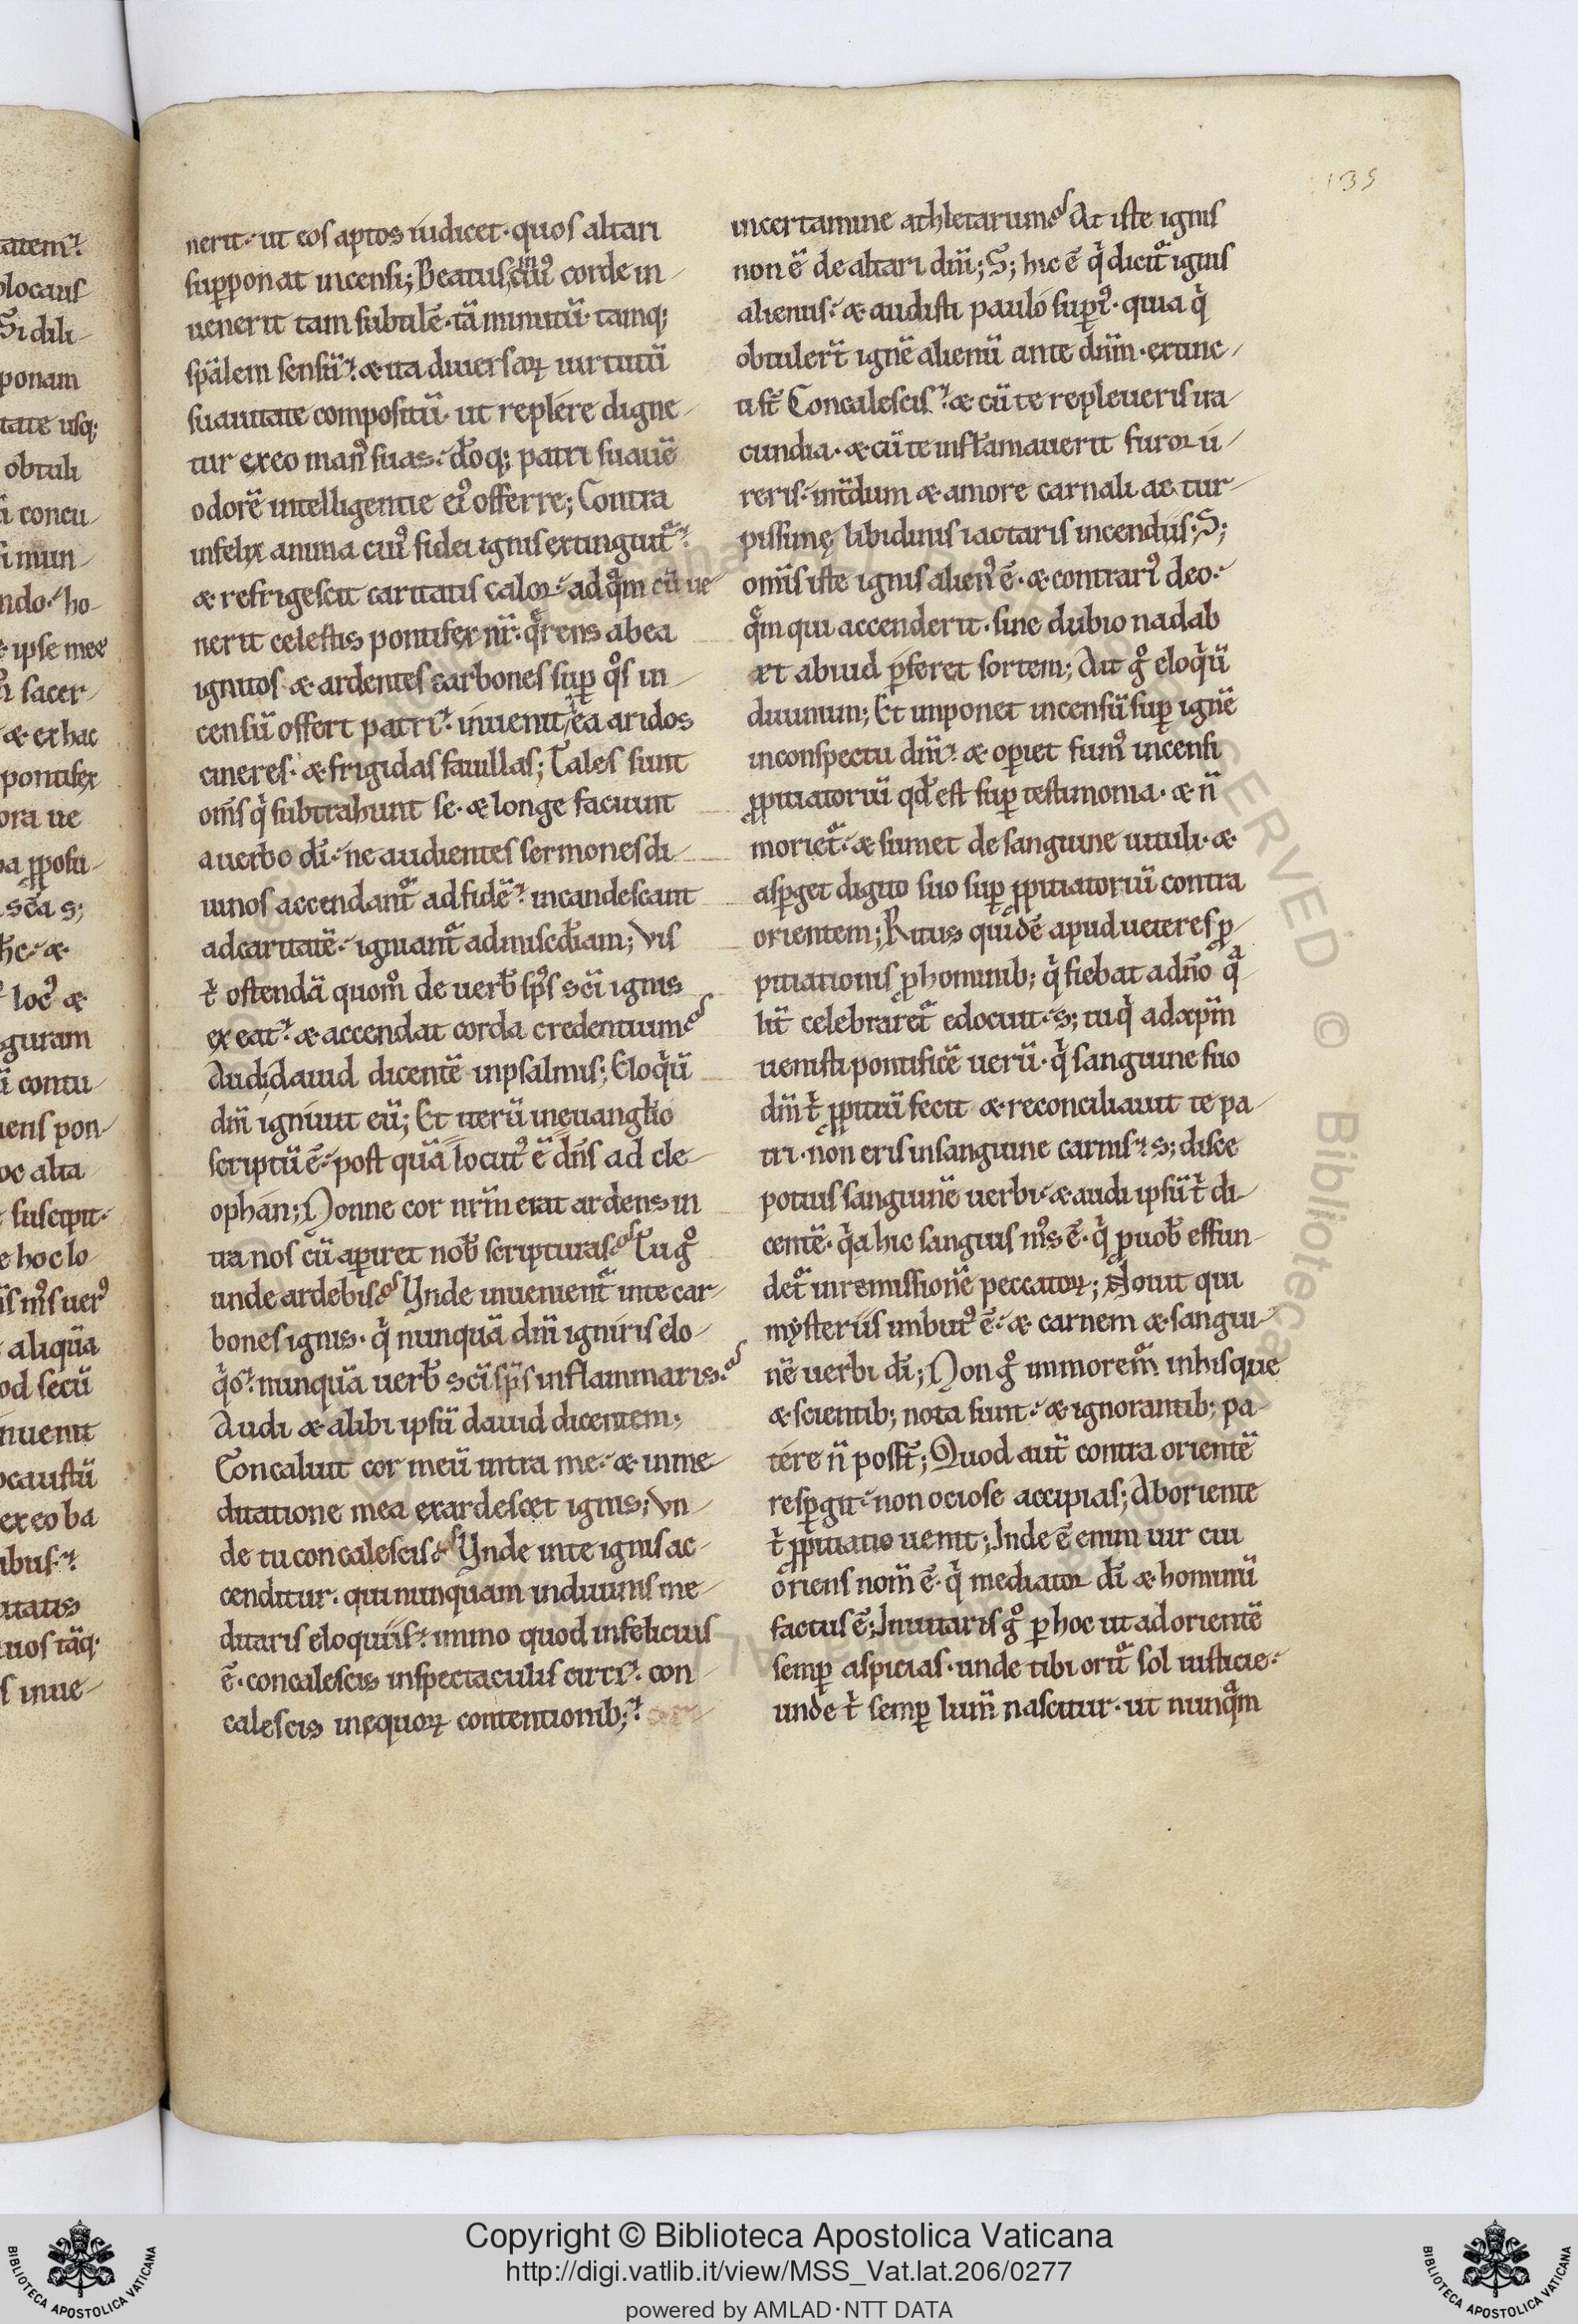 135
nerit. ut eos aptos iudicet. quos altari
supponat incensi; Beatus, in cui᷒ corde in-
uenerit tam subtilē. tā minutū. tamq;
sp̄alem sensū. & ita diuersaꝝ uirtutū
suauitate compositū. ut replere digne-
tur ex eo man᷒ suas. d̄oq; patri suauē
odorē intelligentie ei᷒ offerre; Contra
infelix anima cui᷒ fidei ignis extinguit᷑.
& refrigescit caritatis calor. ad qͣm cū ue-
nerit celestis pontifex nr̄. q̄rens ab ea
ignitos & ardentes carbones sup̱ qͦs in-
censū offert patri. inuenit i ea aridos
cineres. & frigidas fauillas; Tales sunt
om̄s qͥ subtrahunt se. & longe faciunt
a uerbo dī. ne audientes sermones di-
uinos accendant᷑ ad fidē. incandescant
ad caritatē. igniant᷑ ad misc̄diam; Vis
t͛ ostendā quom̊ de uerb̄ sp̄s sc̄i ignis
exeat. & accendat corda credentium?
Audi dauid dicentē in psalmis; Eloqͥū
dn̄i igniuit eū; Et iterū in euangl̄io
scriptū ē. post quā locut᷒ ē dn̄s ad cle-
ophan; Nonne cor nr̄m erat ardens in-
tra nos cū aperiret nob̄ scripturas? Tu gͦ
unde ardebis? Vnde inuenient᷑ in te car-
bones ignis. qͥ nunquā dn̄i igniris elo-
qͥo. nunquā uerb̄ sc̄i sp̄s inflammaris?
Audi & alibi ipsū dauid dicentem;
Concaluit cor meū intra me. & in me-
ditatione mea exardescet ignis; Vn-
de tu concalescis? Vnde in te ignis ac-
cenditur. qui nunquam in diuinis me-
ditaris eloquiis. immo quod infelicius
ē. concalescis in spectaculis circi. con-
calescis in equoꝝ contentionib;.
in certamine athletarum? At iste ignis
non ē de altari dn̄i; S; hic ē qͥ dicit᷑ ignis
alienus. & audisti paulo supi᷒. quia qͥ
obtuler̄t ignē alienū ante dn̄m. extinc-
ti st̄. Concalescis. & cū te repleueris ira-
cundia. & cū te inflamauerit furor. u-
reris. int̄dum & amore carnali ac tur-
pissimę libidinis iactaris incendiis; S;
om̄is iste ignis alien᷒ ē. & contrari᷒ deo.
qͣm qui accenderit. sine dubio nadab
&t abiud p̱feret sortem; Ait gͦ eloqͥū
diuinum; Et imponet incensū sup̱ ignē
in conspectu dn̄i. & op̱iet fum᷒ incensi
ꝓpitiatoriū qd̄ est sup̱ testimonia. & n̄
moriet᷑. & sumet de sanguine uituli. &
asp̱get digito suo sup̱ ꝓpitiatoriū contra
orientem; Ritus quidē apud ueteres ꝓ-
pitiationis ꝓ hominib; qͥ fiebat ad dn̄o qͣ-
lit̄ celebraret᷑ edocuit. s; tu qͥ ad xp̄m
uenisti pontificē uerū. qͥ sanguine suo
dm̄ t͛ ꝓpitiū fecit & reconciliauit te pa-
tri. non eris in sanguine carnis. s; disce
potius sanguinē uerbi. & audi ipsū t͛ di-
centē. qͥa hic sanguis m̊s ē. qͥ ꝓ uob̄ effun-
det᷑ in remissionē peccatoꝝ; Nouit qui
mysteriis imbut᷒ ē. & carnem & sangui-
nē uerbi dī; Non gͦ immorem᷑ in his que
& scientib; nota sunt. & ignorantib; pa-
tere n̄ poss̄t; Quod aut̄ contra orientē
resp̱git. non ociose accipias; Ab oriente
t͛ ꝓpitiatio uenit; Inde ē enim uir cui
oriens nom̄ ē. qͥ mediator dī & hominū
factus ē; Inuitaris gͦ p̱ hoc ut ad orientē
semp̱ aspicias. unde tibi orit᷑ sol iusticie.
unde t͛ semp̱ lum̄ nascitur. ut nunqͣm
Copyright © Biblioteca Apostolica Vaticana
http://digi.vatlib.it/view/MSS_Vat.lat.206/0277
powered by AMLAD·NTT DATA
BIBLIOTECA APOSTOLICA VATICANA
BIBLIOTECA APOSTOLICA VATICANA